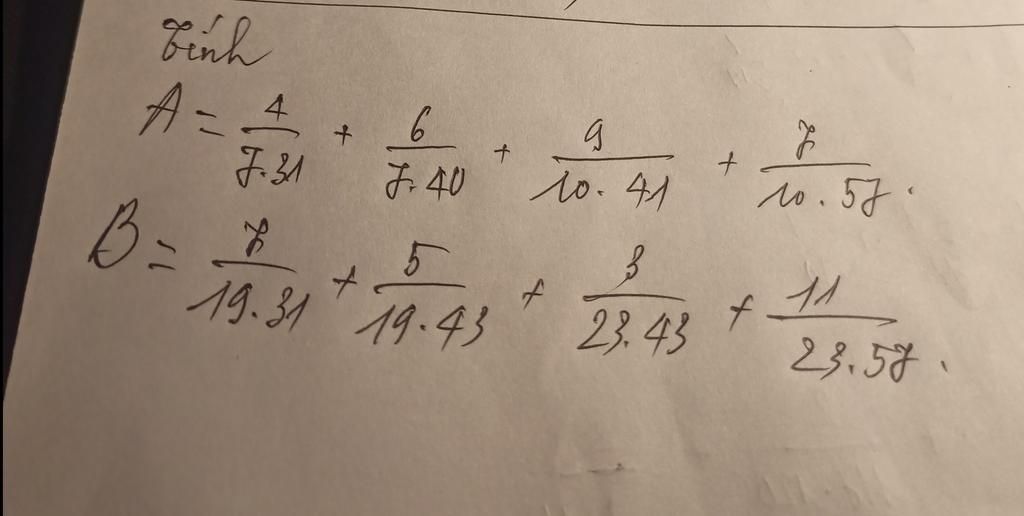 Tính
A = 4/7.31 + 6/7.40 + 9/10.41 + 7/10.57.
B = 7/19.31 + 5/19.43 + 3/23.43 + 11/23.57.